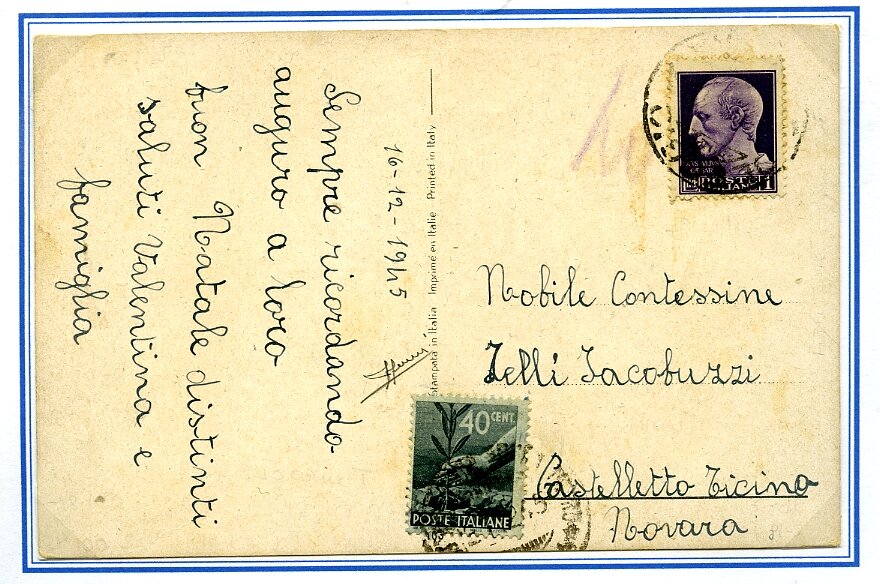 16-12-1945
Sempre ricordando
auguro a loro
buon Natale distinti
saluti Valentina e
famiglia
Stampata in Italia Imprimé en Italie Printed in Italy
POSTE
ITALIANE
1
Nobile Contessine
Zelli Jacobuzzi
Castelletto Ticino
Novara
40 CENT.
POSTE ITALIANE